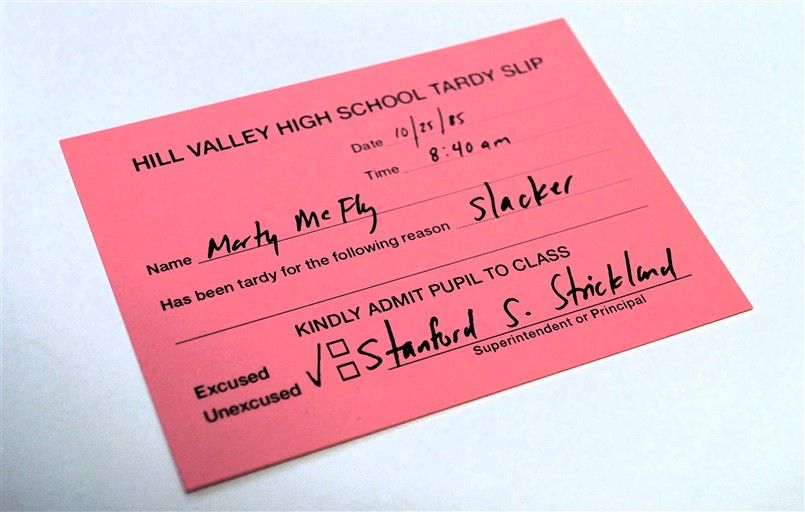 HILL VALLEY HIGH SCHOOL TARDY SLIP
Date 10/25/85
Time 8:40 am
Name Marty McFly
Has been tardy for the following reason slacker
KINDLY ADMIT PUPIL TO CLASS
Excused
Unexcused
Stanford S. Strickland
Superintendent or Principal